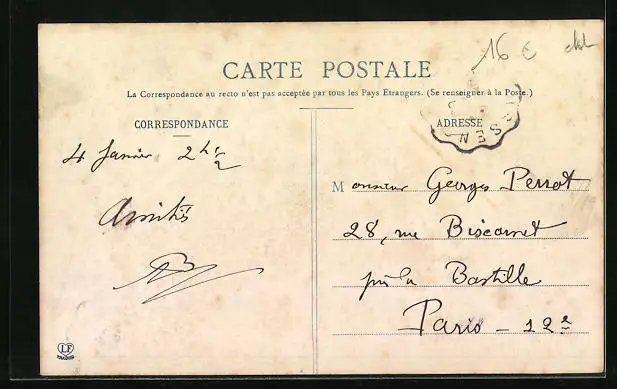 16 €
CARTE POSTALE
La Correspondance au recto n'est pas acceptée par tous les Pays Etrangers. (Se renseigner à la Poste.)
CORRESPONDANCE
4 Janvier 2h 1/2
Amitiés
AB
ADRESSE
Monsieur Georges Perrot
28, rue Biscornet
près la Bastille
Paris - 12e
LF